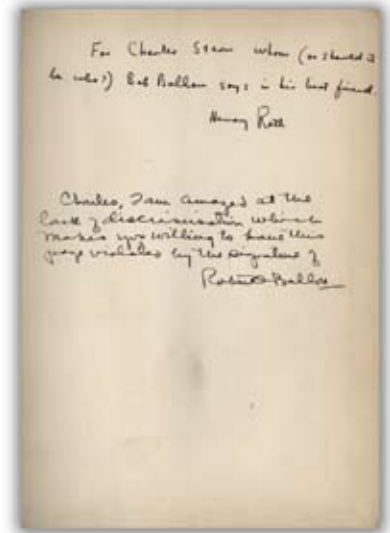 For Charles Stern whom (or should it
be who?) Bob Ballou says is his best friend.
Henry Roth
Charles, I am amazed at the
lack of discrimination which
makes you willing to have this
page violated by the signature of
Robert O Ballou